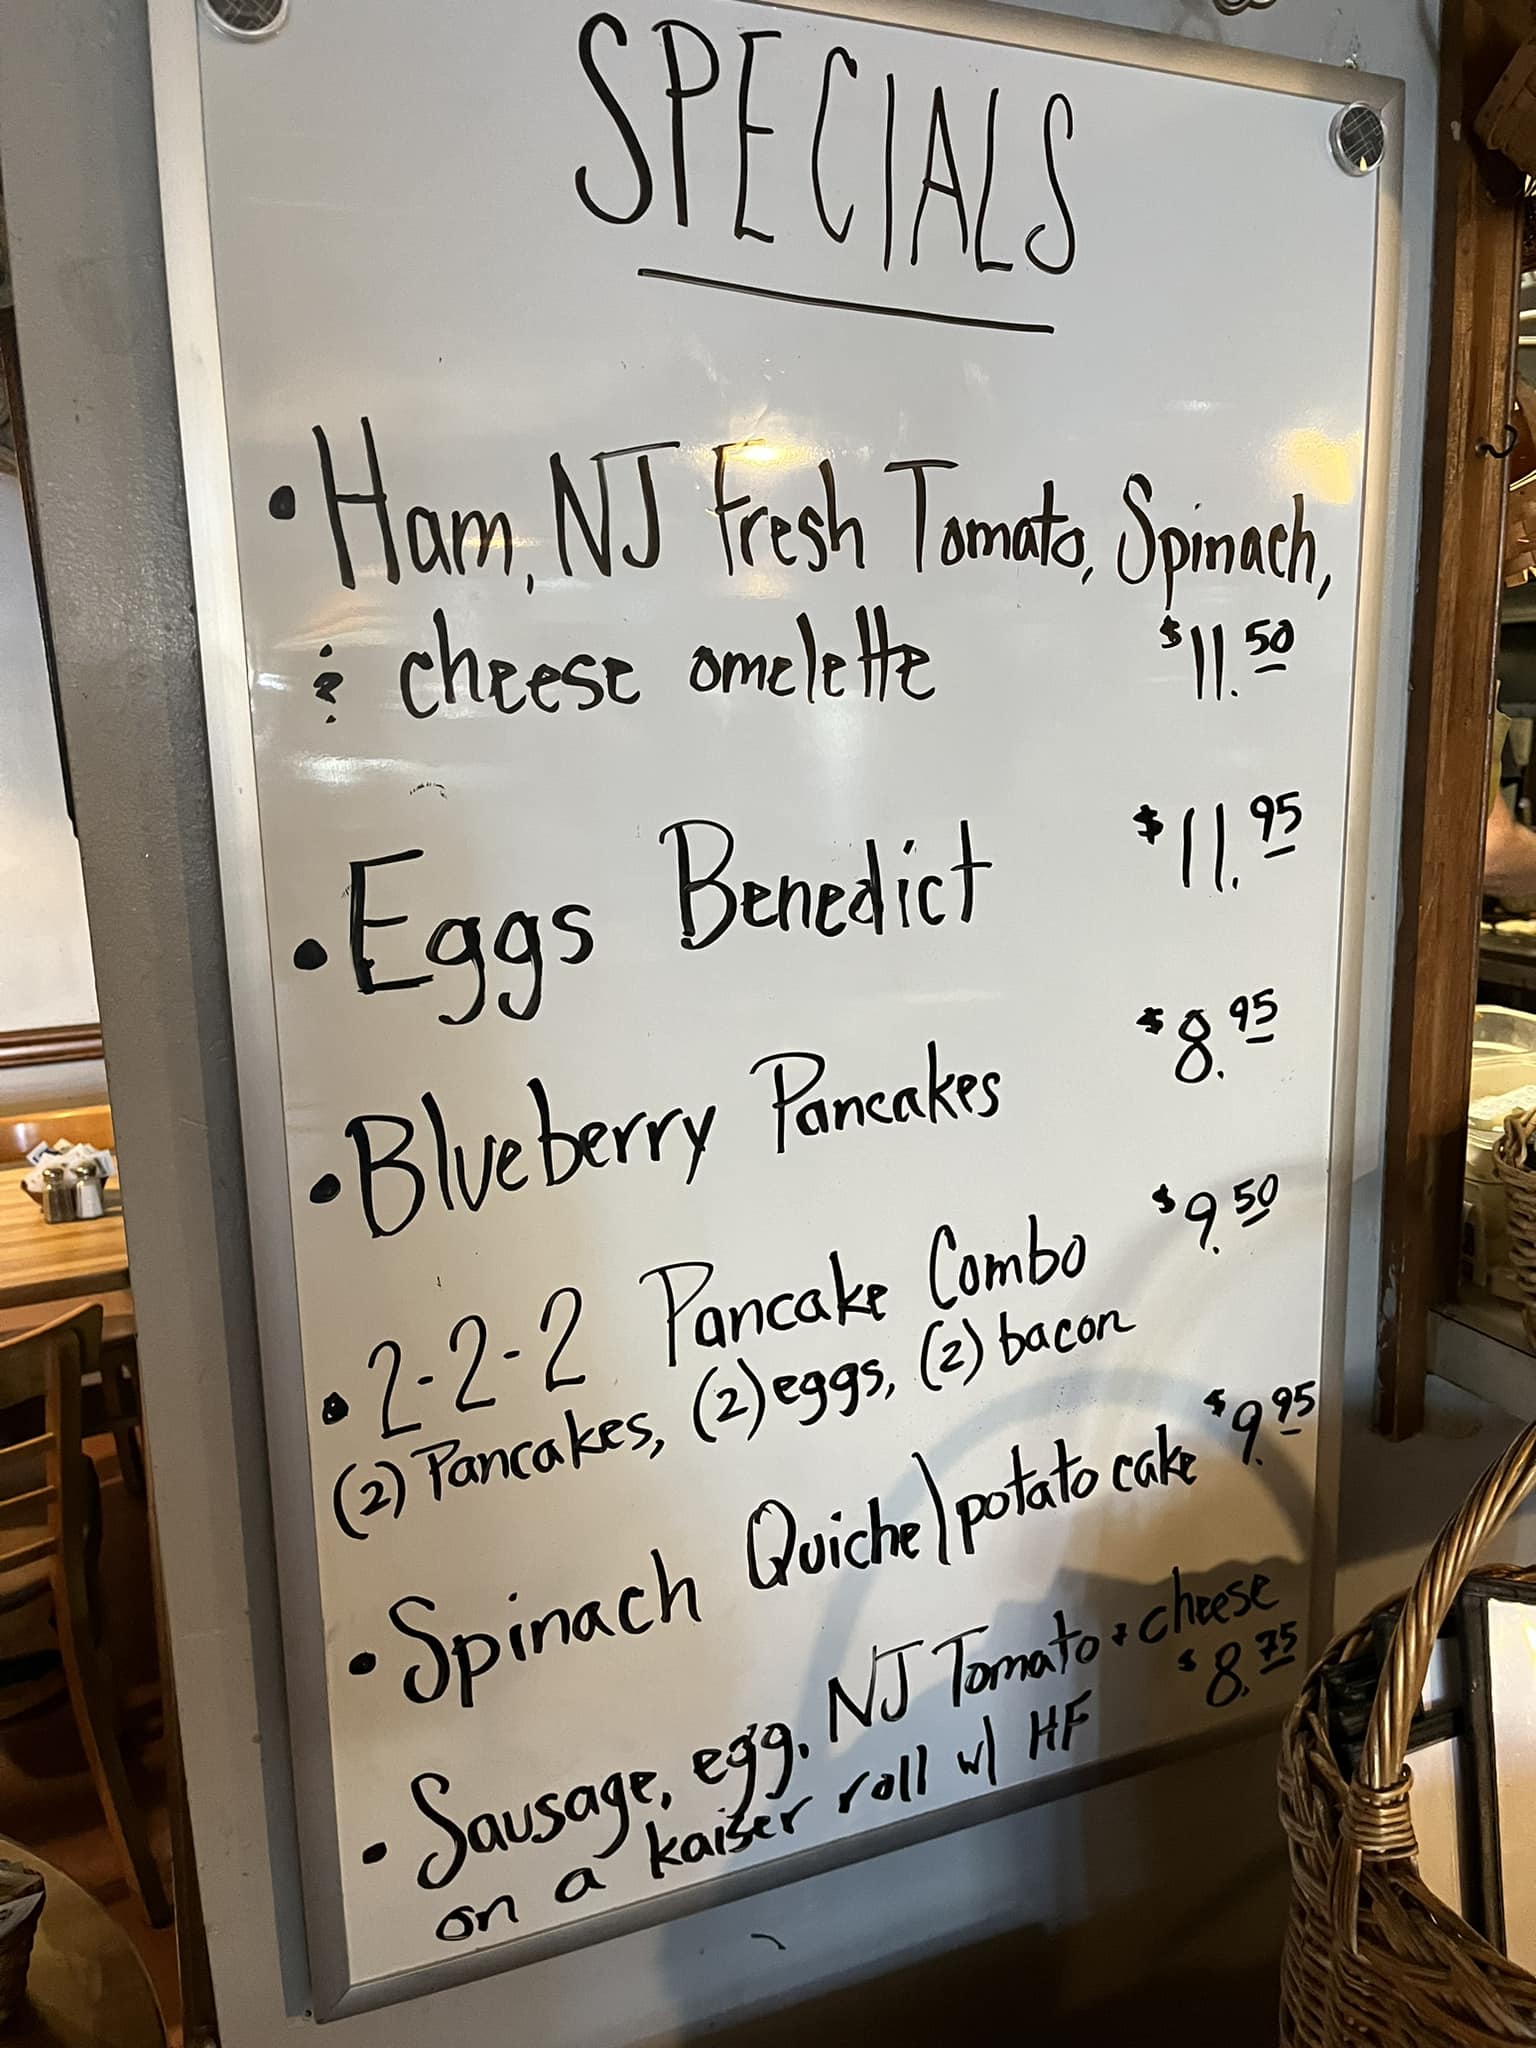 SPECIALS
• Ham, NJ Fresh Tomato, Spinach,
& cheese omelette $11.50
• Eggs Benedict $11.95
• Blueberry Pancakes $8.95
• 2-2-2 Pancake Combo $9.50
(2) Pancakes, (2) eggs, (2) bacon
• Spinach Quiche/potato cake $9.95
• Sausage, egg, NJ Tomato + cheese
on a kaiser roll w/ HF $8.75